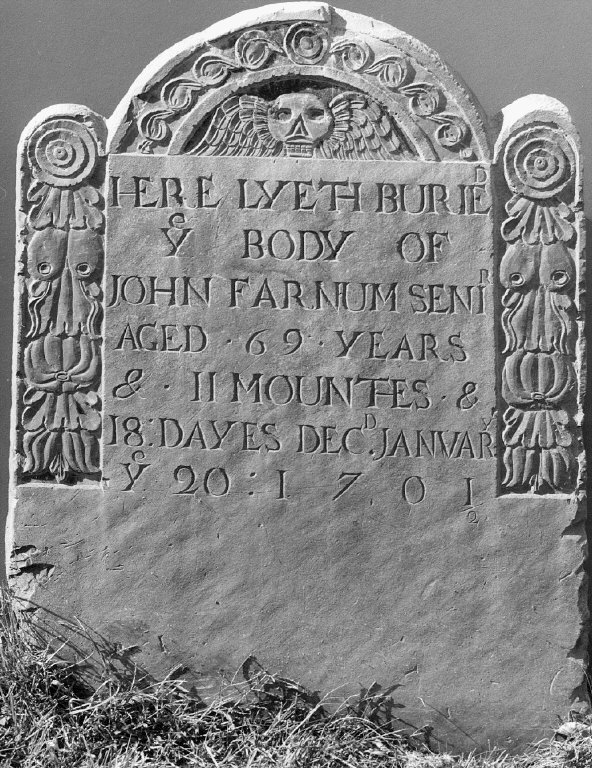 HERE LYETH BURIEᴰ
Yᵉ BODY OF
JOHN FARNUM SENIᴿ
AGED · 69 · YEARS
& · 11 MOUNTHES · &
18: DAYES DECᴰ. JANVARʸ
Yᵉ 20 : 1 7 0 1/2